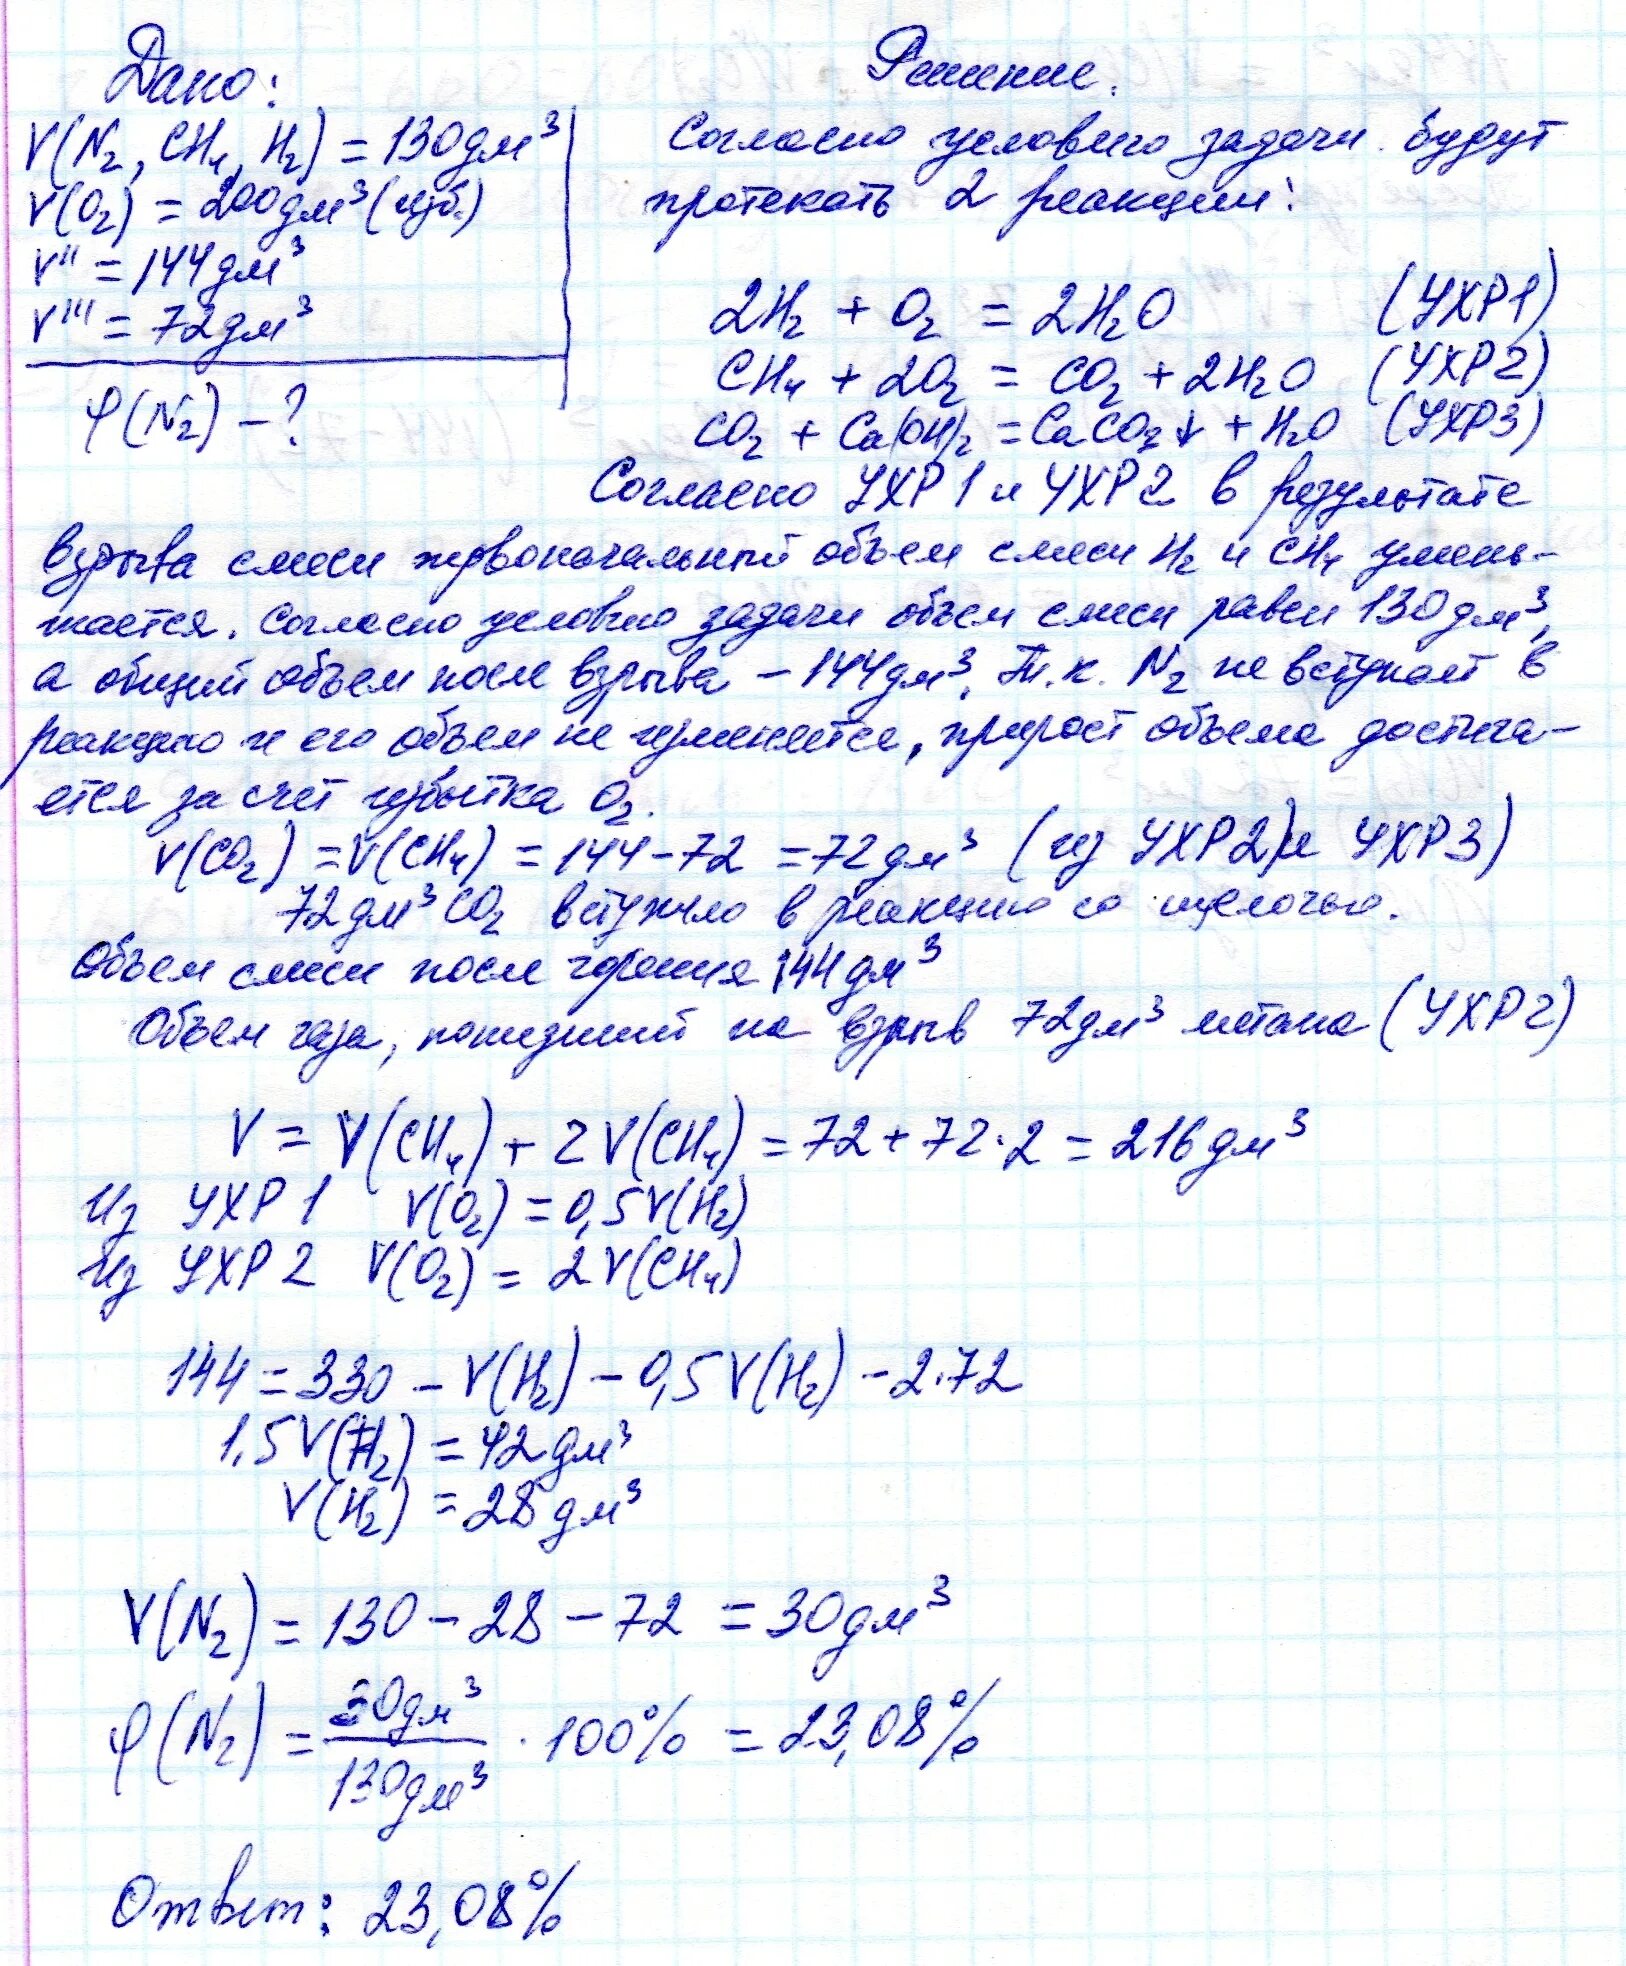 Дано:
V(N₂, CH₄, H₂) = 130дм³
V(O₂) = 200дм³ (изб.)
V'' = 144дм³
V''' = 72дм³
φ(N₂) – ?
Решение.
Согласно условию задачи будут
протекать 2 реакции:
2H₂ + O₂ = 2H₂O (УХР1)
CH₄ + 2O₂ = CO₂ + 2H₂O (УХР2)
CO₂ + Ca(OH)₂ = CaCO₃↓ + H₂O (УХР3)
Согласно УХР1 и УХР2 в результате
взрыва смеси первоначальный объем смеси H₂ и CH₄ умень-
шается. Согласно условию задачи объем смеси равен 130дм³,
а общий объем после взрыва – 144дм³. Т.к. N₂ не вступает в
реакцию и его объем не изменяется, прирост объема достига-
ется за счет избытка O₂.
V(CO₂) = V(CH₄) = 144 – 72 = 72дм³ (из УХР2)и УХР3)
72дм³ CO₂ вступило в реакцию со щелочью.
Объем смеси после горения 144дм³
Объем газа, пошедший на взрыв 72дм³ метана (УХР2)
V = V(CH₄) + 2V(CH₄) = 72 + 72·2 = 216дм³
Из УХР1 V(O₂) = 0,5V(H₂)
Из УХР2 V(O₂) = 2V(CH₄)
144 = 330 – V(H₂) – 0,5V(H₂) – 2·72
1,5V(H₂) = 42дм³
V(H₂) = 28дм³
V(N₂) = 130 – 28 – 72 = 30дм³
φ(N₂) = 30дм³/130дм³ · 100% = 23,08%
Ответ: 23,08%